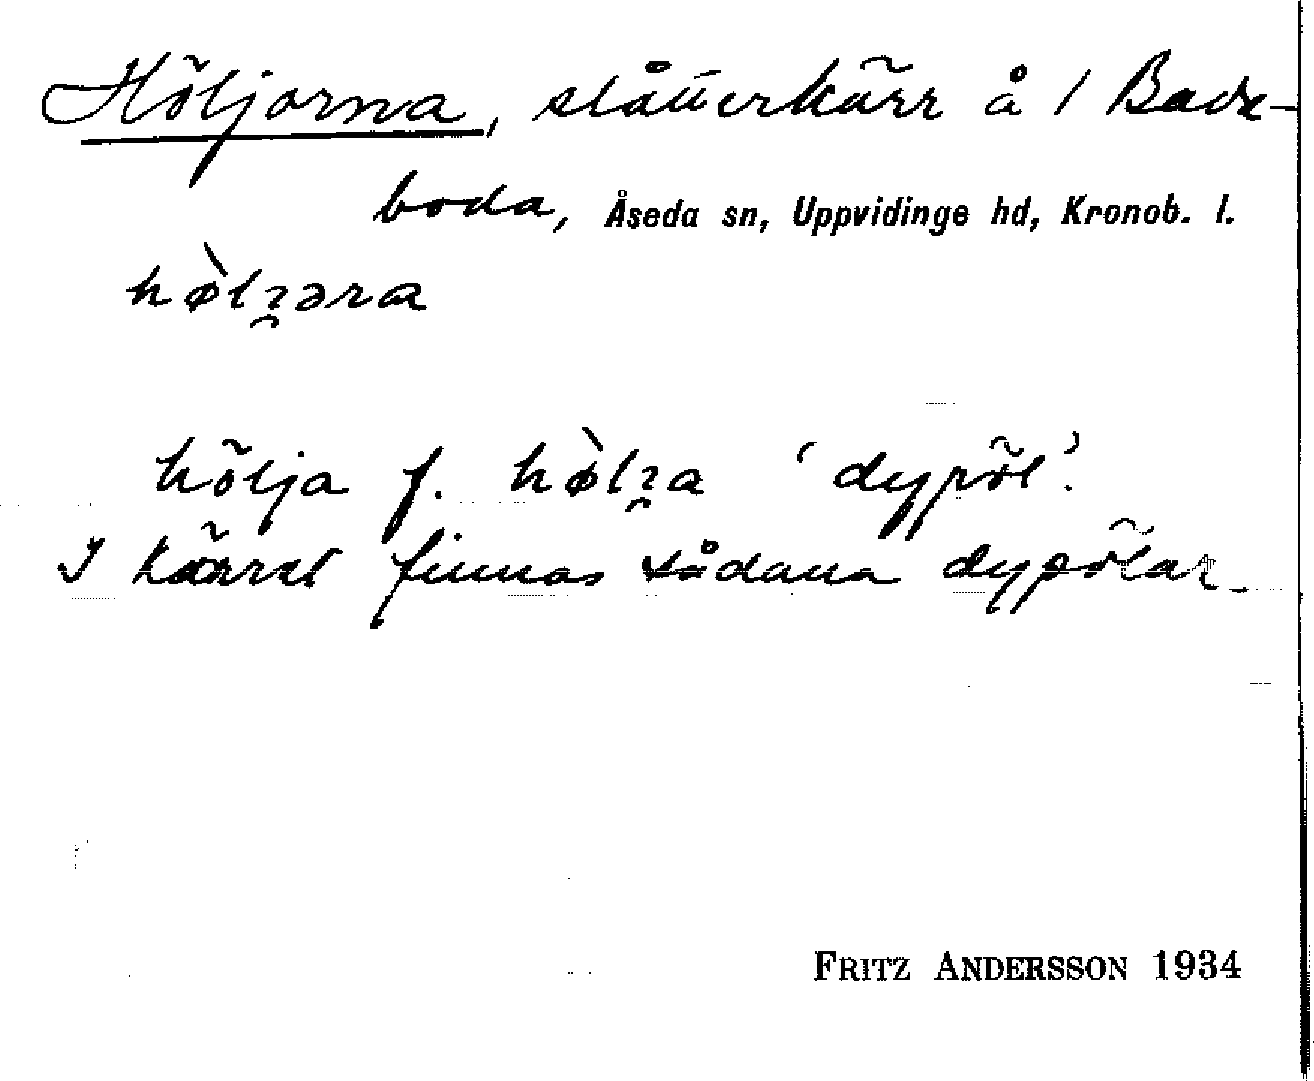 Höljorna, slåtterkärr å 1 Back-
boda, Åseda sn, Uppvidinge hd, Kronob. l.
hø̀lʒ̯əra
hölja f. hø̀lʒ̯a 'dypöl'.
I kärret finnas sådana dypölar.
FRITZ ANDERSSON 1934